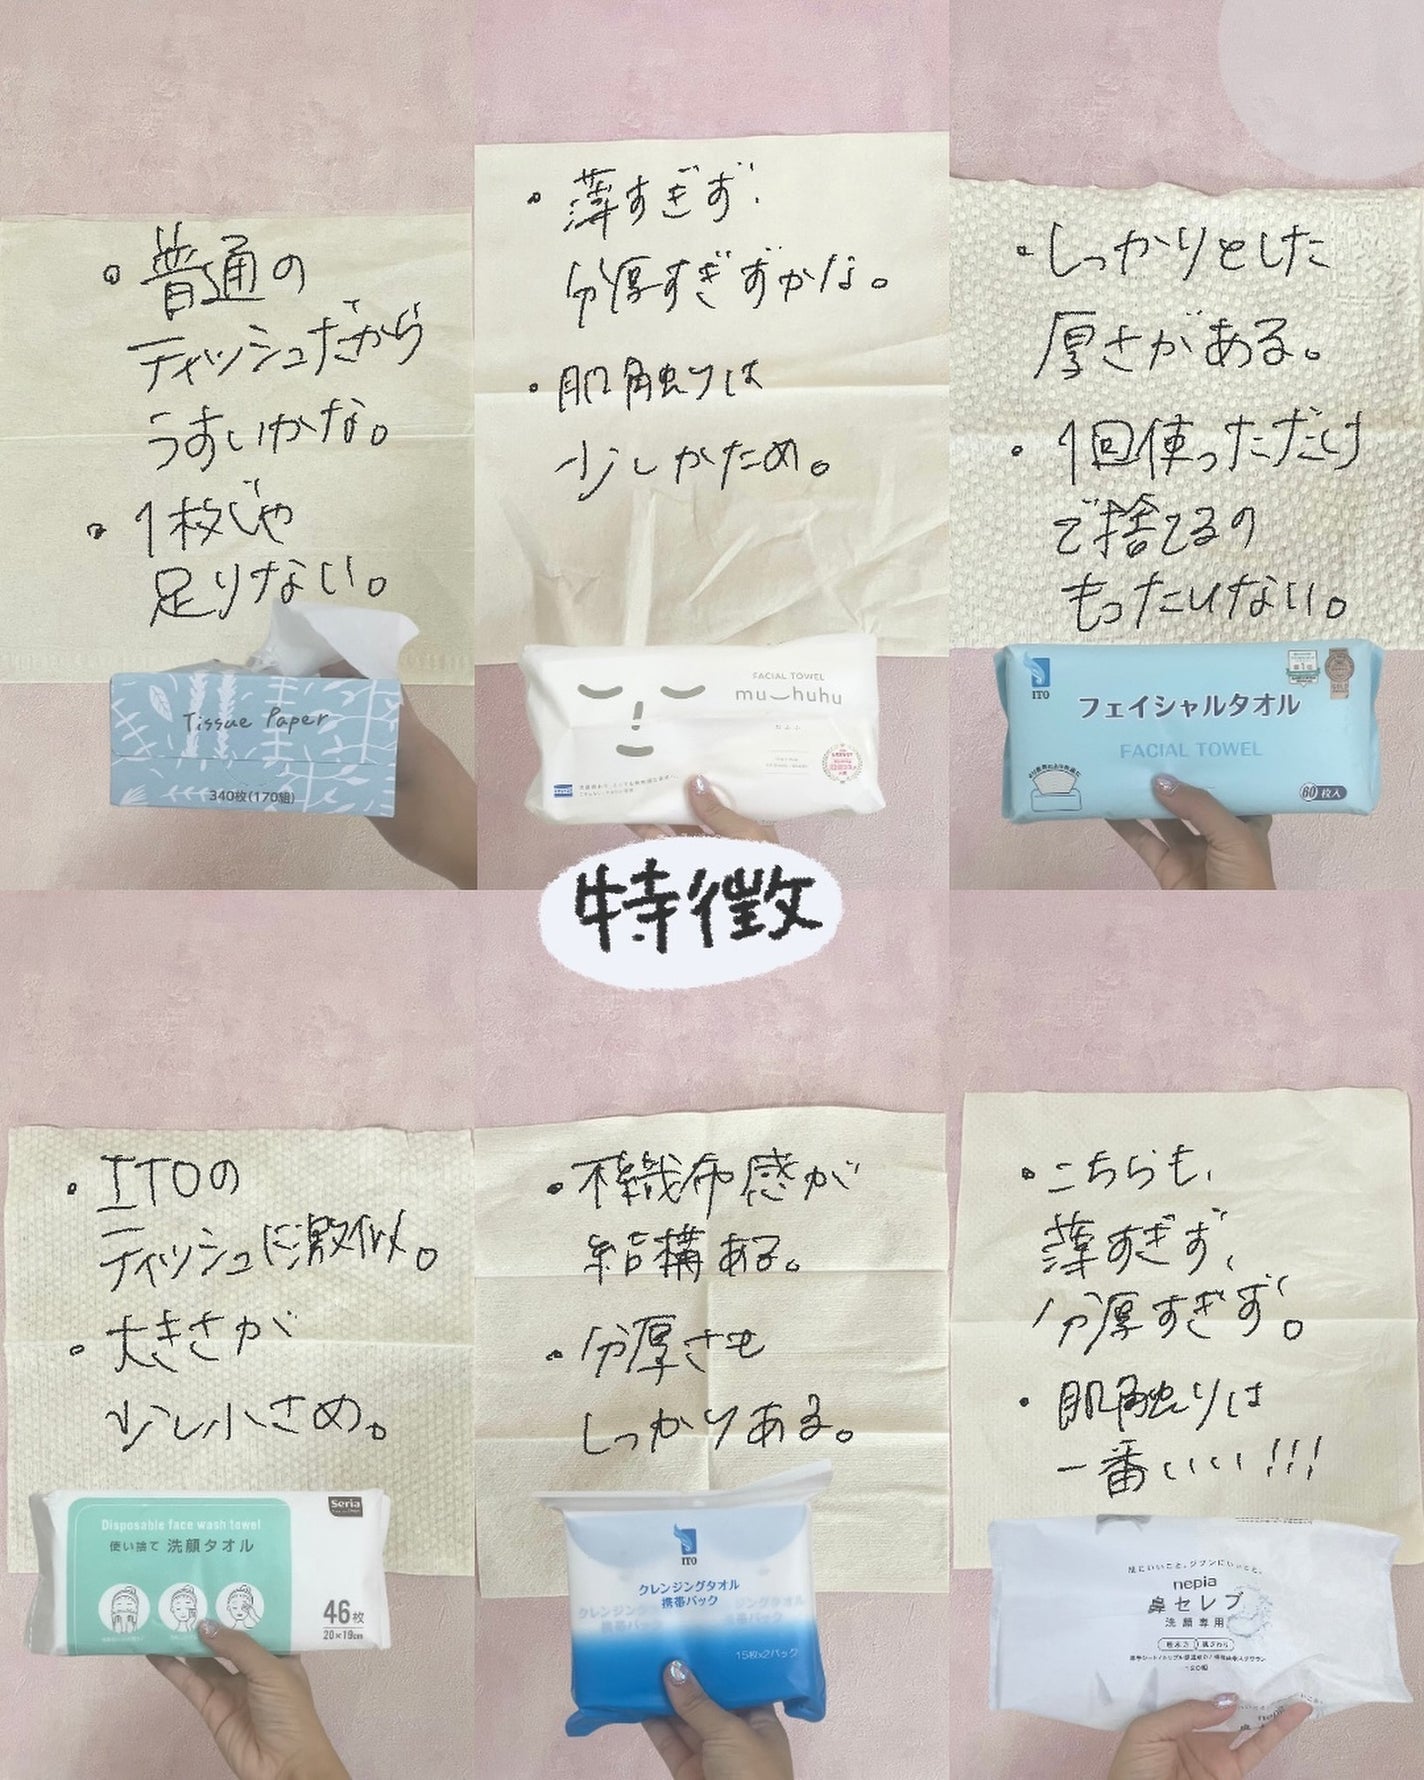 。普通の
ティッシュだから
うすいかな。
。1枚じゃ
足りない。
Tissue Paper
340枚(170組)
。薄すぎず、
分厚すぎずかな。
・肌触りは
少しかため。
FACIAL TOWEL
mu huhu
・しっかりとした
厚さがある。
。1回使っただけ
で捨てるの
もったいない。
ITO
フェイシャルタオル
FACIAL TOWEL
60枚入
特徴
・ITOの
ティッシュに激似。
・大きさが
少し小さめ。
Seria
Disposable face wash towel
使い捨て 洗顔タオル
46枚
20×19cm
・不織布感が
結構ある。
・分厚さも
しっかりある。
ITO
クレンジングタオル
携帯パック
15枚×2パック
・こちらも、
薄すぎず、
分厚すぎず。
・肌触りは
一番いい!!!
nepia
鼻セレブ
洗顔専用